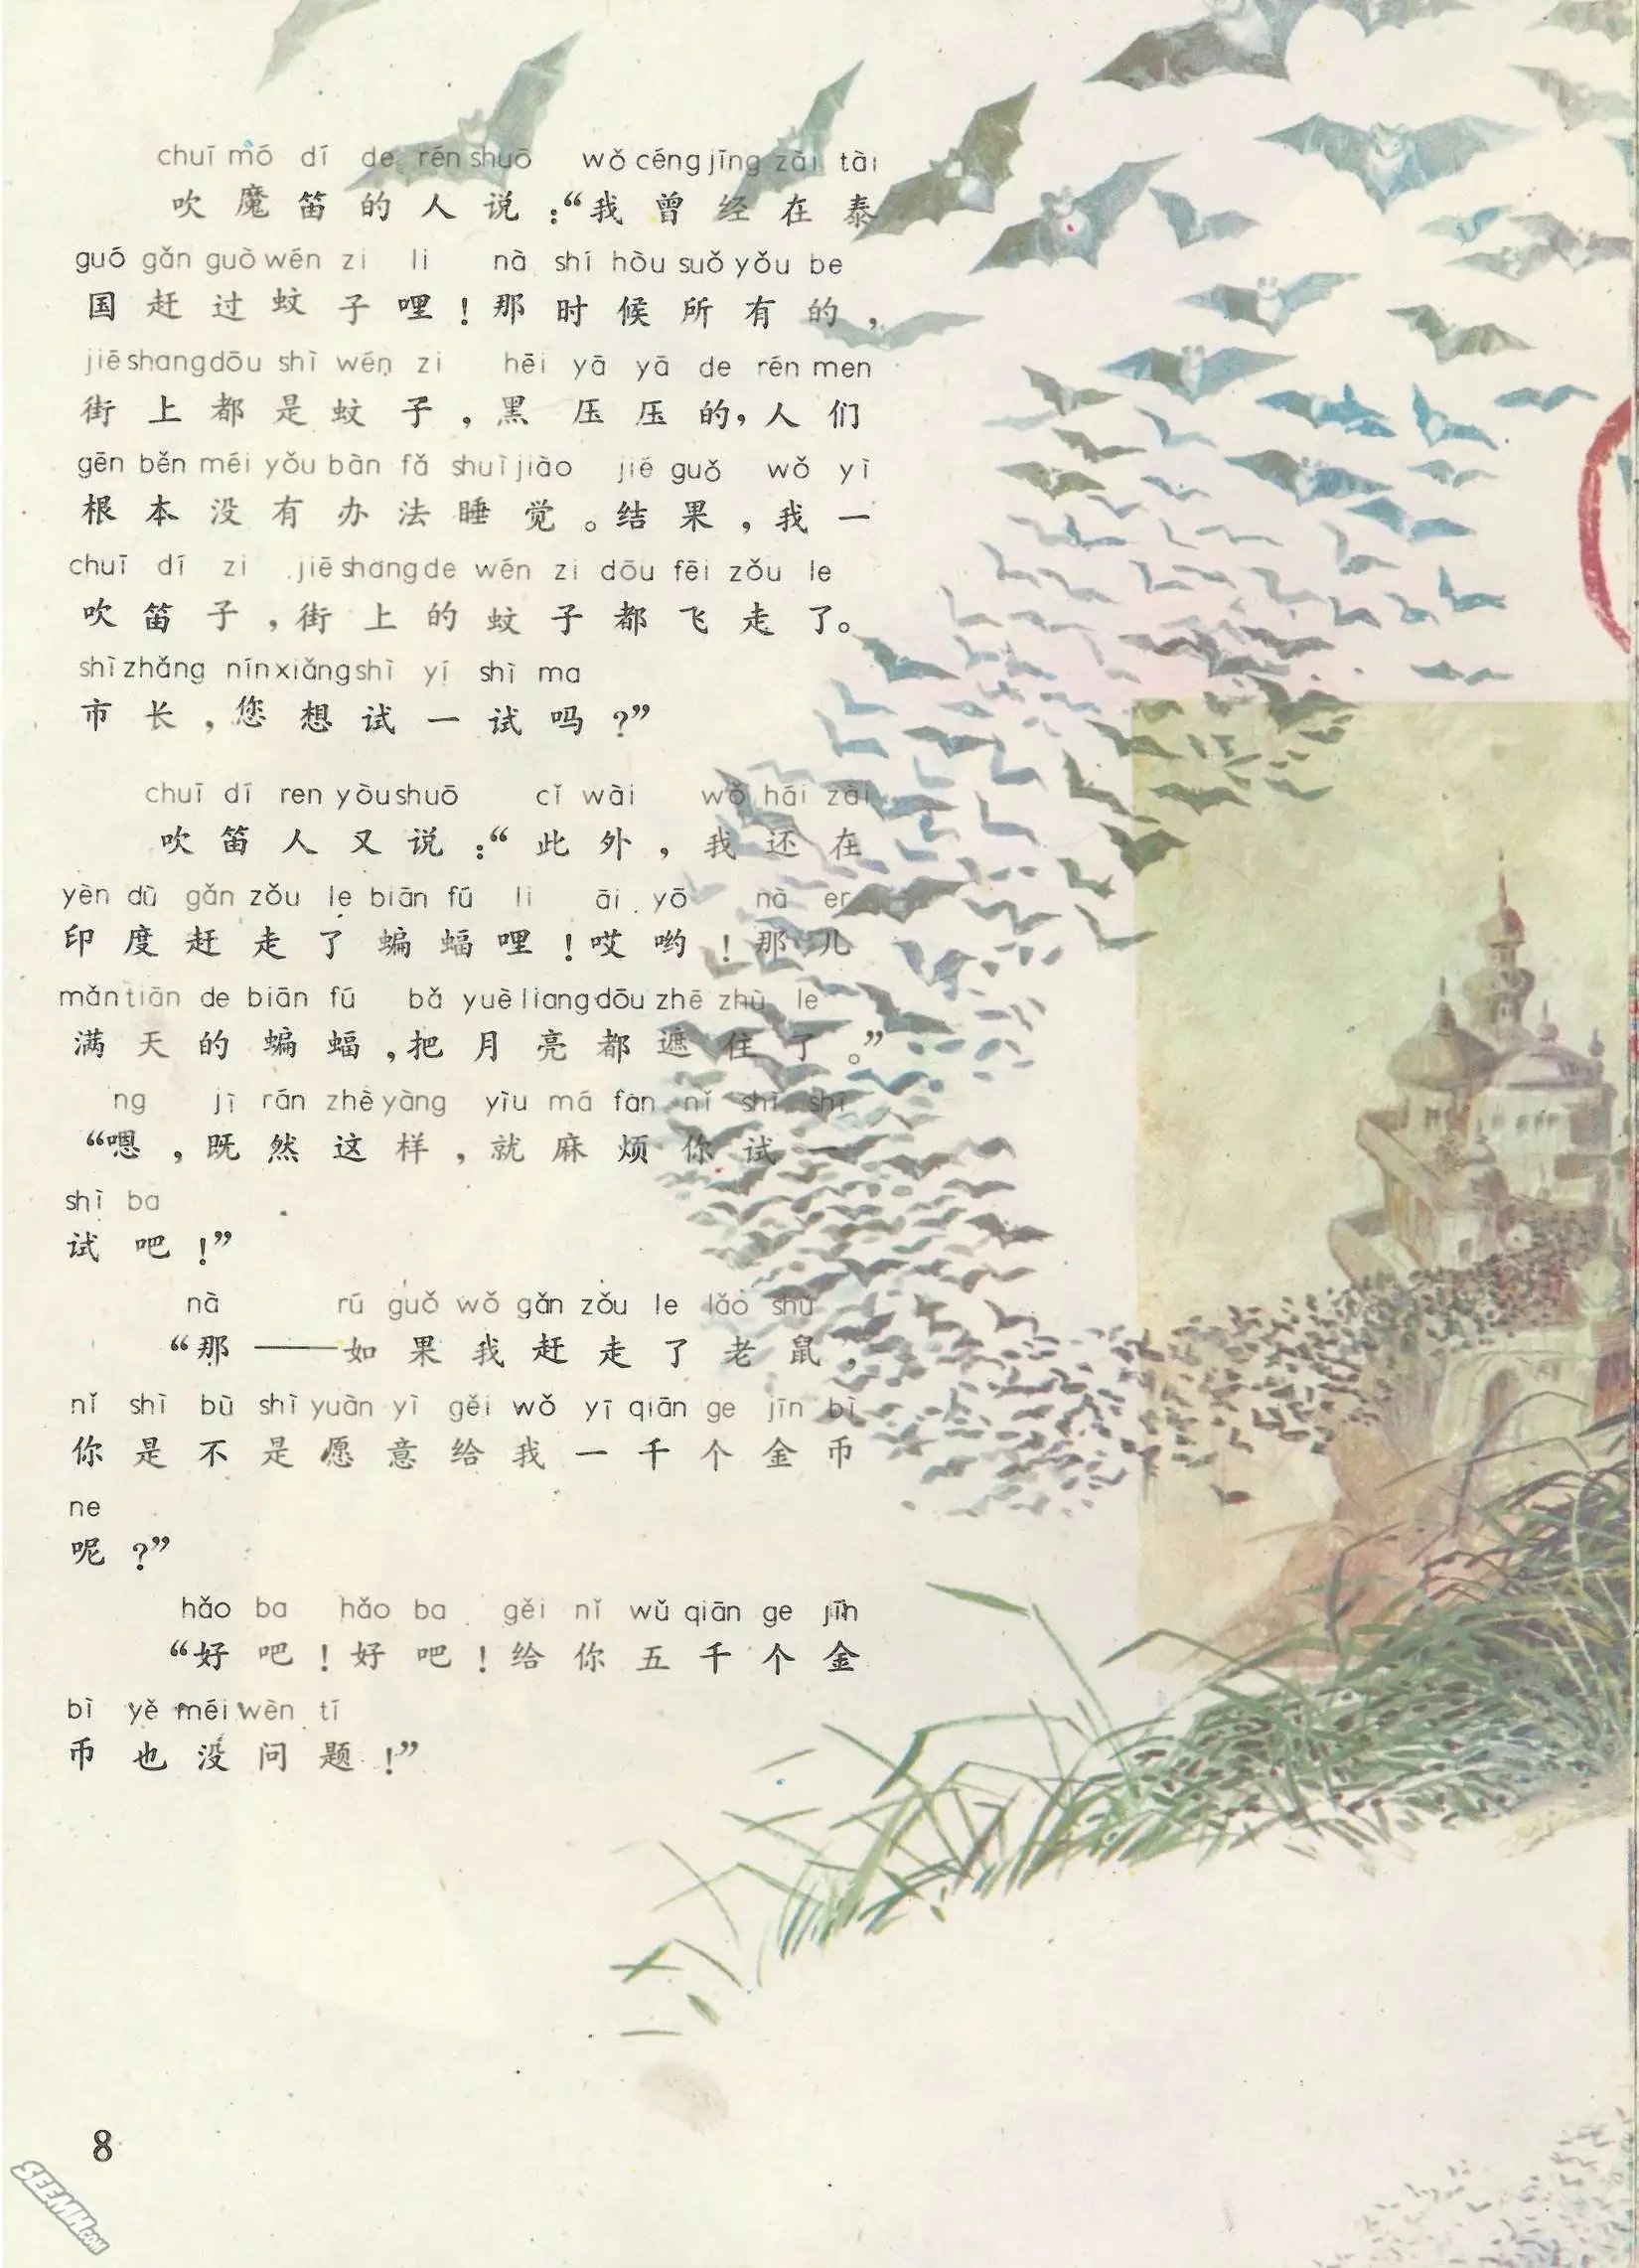 chuī mó dí de rén shuō wǒ céng jīng zài tài
吹魔笛的人说：“我曾经在泰
guó gǎn guò wén zi li nà shí hòu suǒ yǒu be
国赶过蚊子哩！那时候所有的，
jiē shang dōu shì wén zi hēi yā yā de rén men
街上都是蚊子，黑压压的，人们
gēn běn méi yǒu bàn fǎ shuì jiào jié guǒ wǒ yì
根本没有办法睡觉。结果，我一
chuī dí zi jiē shang de wén zi dōu fēi zǒu le
吹笛子，街上的蚊子都飞走了。
shì zhǎng nín xiǎng shì yí shì ma
市长，您想试一试吗？”
chuī dí ren yòu shuō cǐ wài wǒ hái zài
吹笛人又说：“此外，我还在
yèn dù gǎn zǒu le biān fú li āi yō nà er
印度赶走了蝙蝠哩！哎哟！那儿
mǎn tiān de biān fú bǎ yuè liang dōu zhē zhù le
满天的蝙蝠，把月亮都遮住了。”
ng jì rán zhè yàng yìu má fan nǐ shì shi
“嗯，既然这样，就麻烦你试一
shì ba
试吧！”
nà rú guǒ wǒ gǎn zǒu le lǎo shǔ
“那——如果我赶走了老鼠，
nǐ shì bù shì yuàn yì gěi wǒ yī qiān ge jīn bì
你是不是愿意给我一千个金币
ne
呢？”
hǎo ba hǎo ba gěi nǐ wǔ qiān ge jīn
“好吧！好吧！给你五千个金
bì yě méi wèn tí
币也没问题！”
8
SEEMH.COM